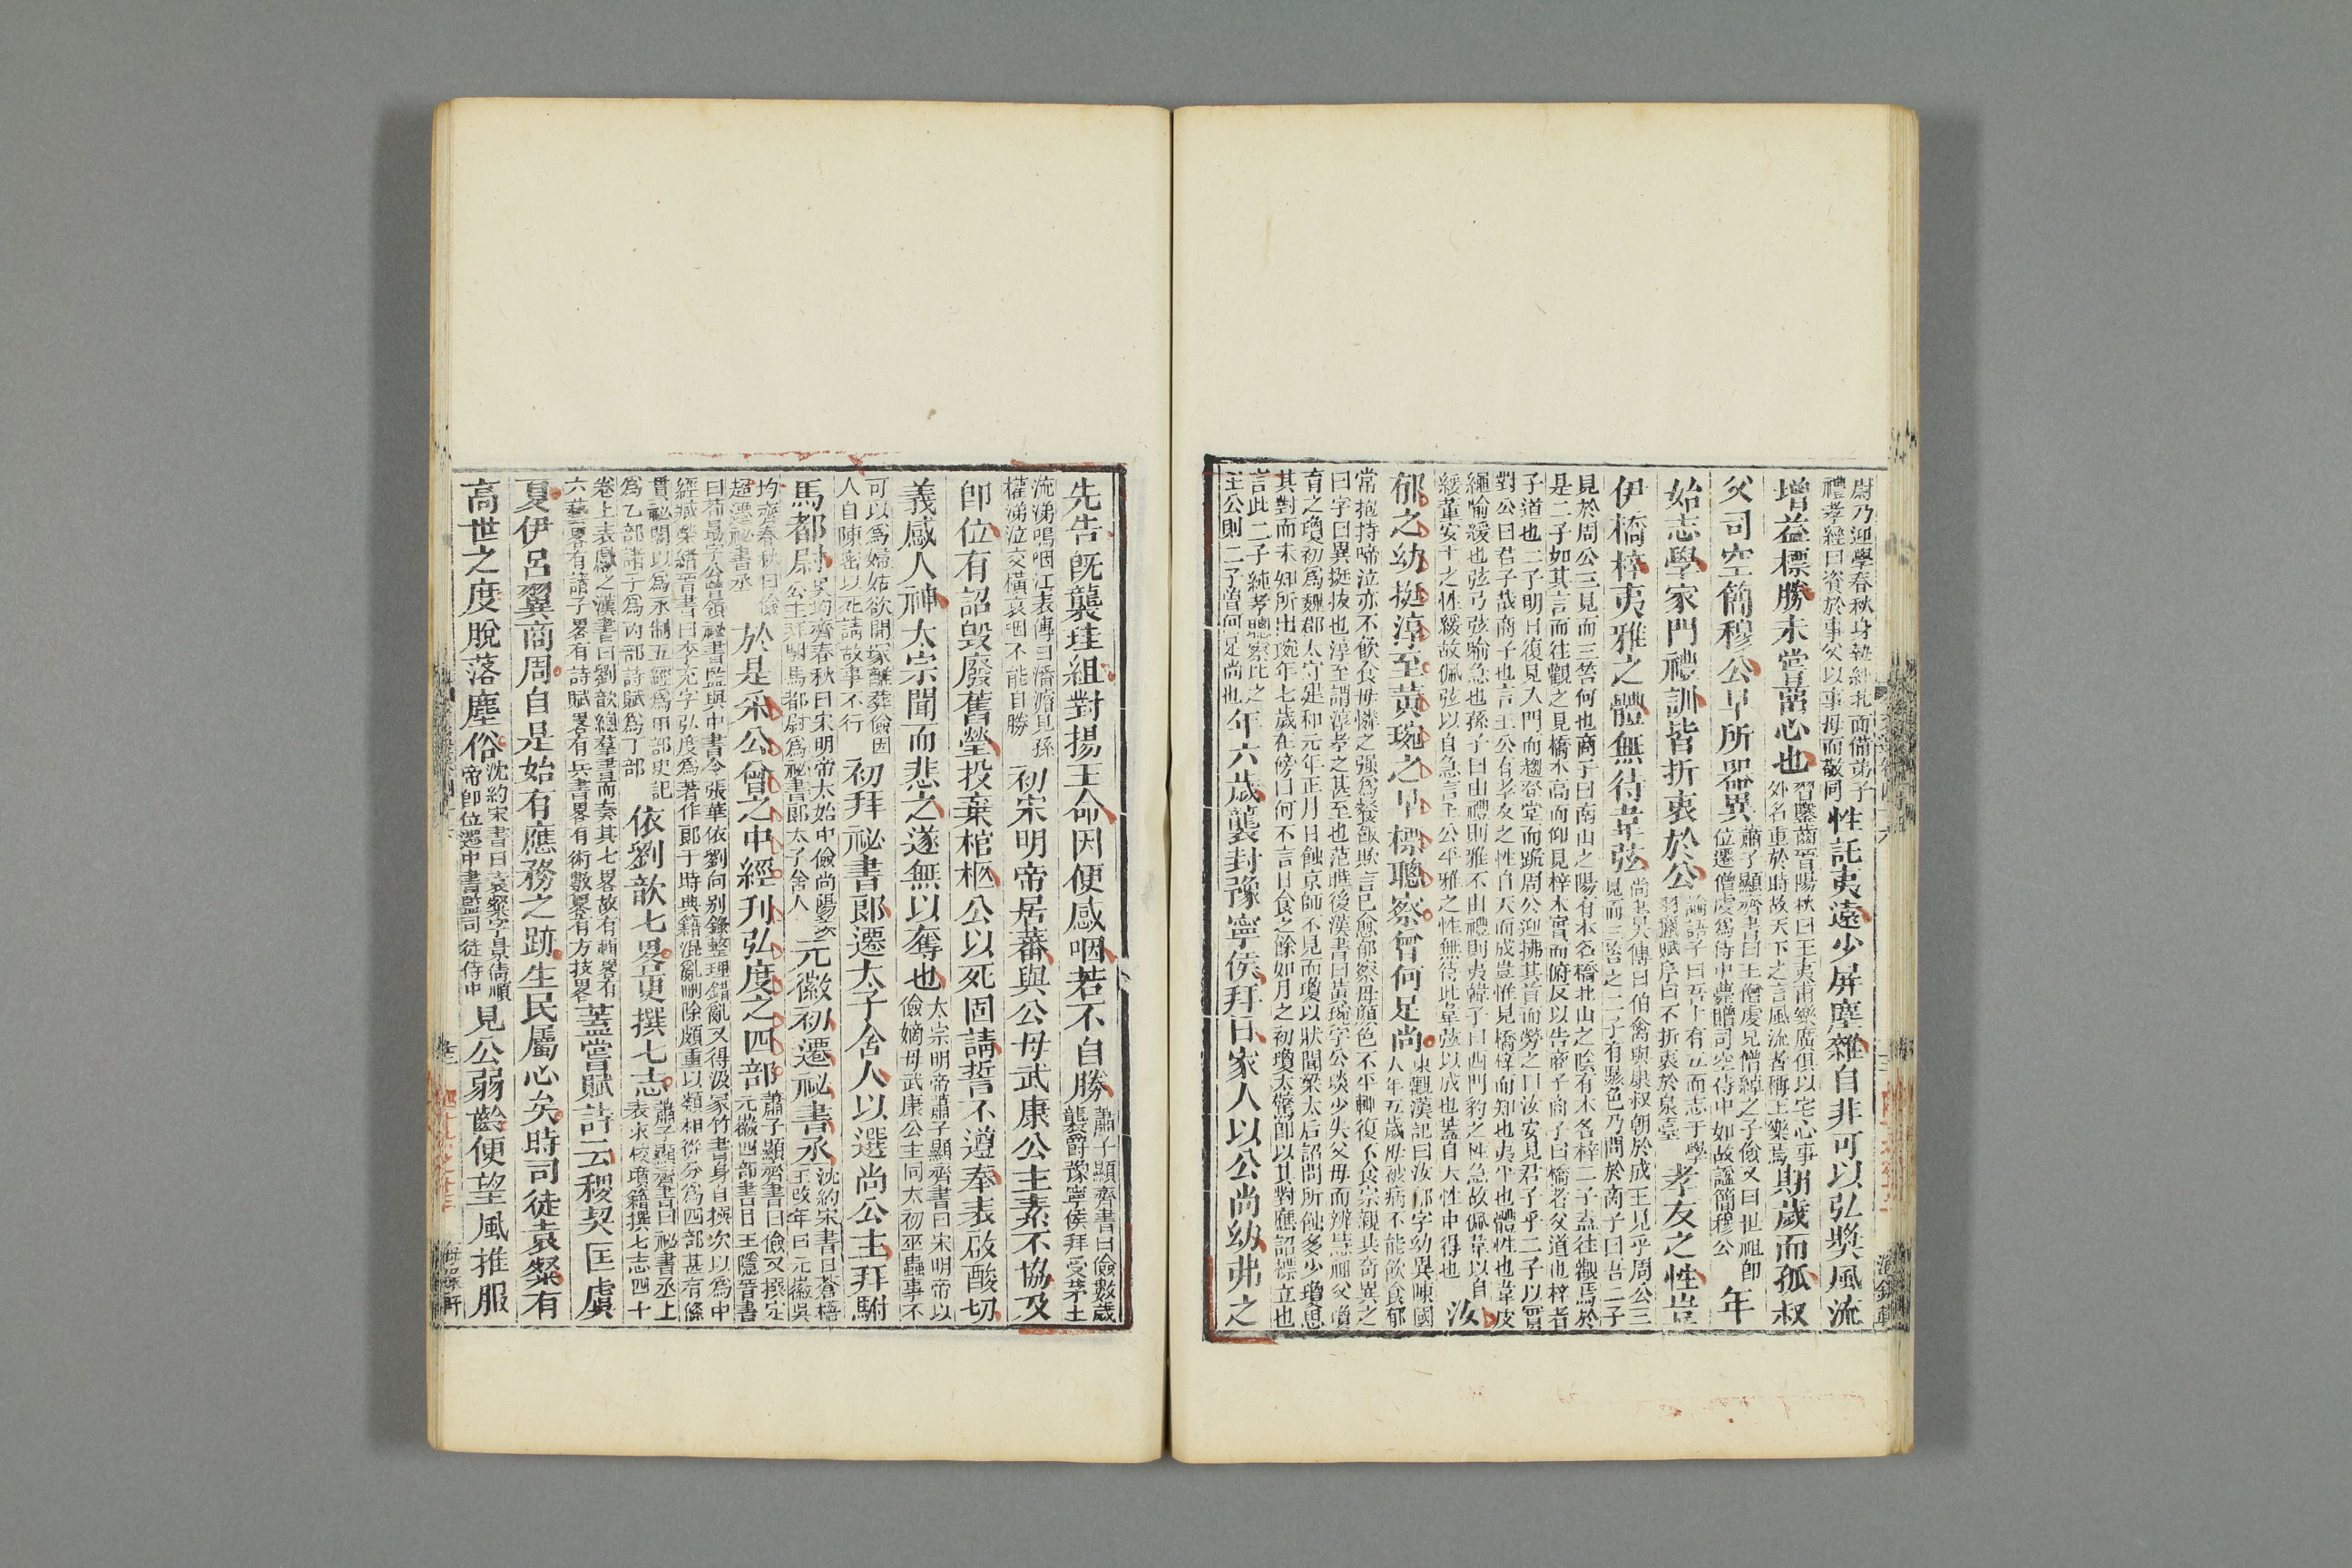 尉乃迎學春秋身執經北面備弟子禮孝經曰資於事父以事母而敬同性託夷遠少屏塵雜自非可以弘獎風流
增益標勝未嘗留心也習鑿齒晉陽秋曰王夷甫樂廣俱以宅心事外名重於時故天下之言風流者稱王樂焉期歲而孤叔
父司空簡穆公早所器異蕭子顯齊書曰王僧虔兄僧綽之子儉又曰世祖卽位遷僧虔爲侍中薨贈司空侍中如故諡簡穆公年
始志學家門禮訓皆折衷於公論語子曰吾十有五而志于學羽獵賦序曰不折衷於泉臺孝友之性豈
伊橋梓夷雅之體無待韋弦尚書大傳曰伯禽與康叔朝於成王見乎周公三見而三笞之二子有駭色乃問於商子曰吾二子
見於周公三見而三笞何也商子曰南山之陽有木名橋北山之陰有木名梓二子盍往觀焉於
是二子如其言而往觀之見橋木高而仰見梓木實而俯反以告商子商子曰橋者父道也梓者
子道也二子明日復見入門而趨登堂而跪周公迎拂其首而勞之曰汝安見君子乎二子以實
對公曰君子哉商子也言王公有孝友之性自天而成豈惟見橋梓而知也夷平也體性也韋皮
繩喻緩也弦弓弦喻急也孫子曰由禮則雅不由禮則夷韓子曰西門豹之性急故佩韋以自
緩董安于之性緩故佩弦以自急言王公平雅之性無待此韋弦以成也蓋自大性中得也汝
郁之幼挺淳至黃琬之早標聰察曾何足尚東觀漢記曰汝郁字幼異陳國人年五歲母被病不能飲食郁
常抱持啼泣亦不飲食母憐之强爲餐飯欺言已愈郁察母顏色不平輒復不食宗親共奇異之
曰字曰異挺拔也淳至謂淳孝之甚至也范曄後漢書曰黃琬字公琰少失父母而辨慧祖父瓊
育之瓊初爲魏郡太守建和元年正月日蝕京師不見而瓊以狀聞梁太后詔問所蝕多少瓊思
其對而未知所出琬年七歲在傍曰何不言日食之餘如月之初瓊大驚卽以其對應詔標立也
言此二子純孝聰察比之王公則二子曾何足尚也年六歲襲封豫寧侯拜日家人以公尚幼弗之
先告旣襲珪組對揚王命因便感咽若不自勝蕭子顯齊書曰儉數歲襲爵豫寧侯拜受茅土
流涕嗚咽江表傳曰潘濬見孫權涕泣交橫哀咽不能自勝初宋明帝居蕃與公母武康公主素不協及
卽位有詔毀廢舊塋投棄棺柩公以死固請誓不遵奉表啟酸切
義感人神太宗聞而悲之遂無以奪也太宗明帝蕭子顯齊書曰宋明帝以儉嫡母武康公主同太初巫蠱事不
可以爲婦姑欲開塚離葬儉因人自陳密以死請故事不行初拜祕書郞遷太子舍人以選尚公主拜駙
馬都尉吳均齊春秋曰宋明帝太始中儉尚陽羨公主拜駙馬都尉爲祕書郞太子舍人元徽初遷祕書丞沈約宋書曰蒼梧王改年曰元徽吳
均齊春秋曰儉超遷祕書丞於是采公曾之中經刊弘度之四部蕭子顯齊書曰儉又撰定元徽四部書目王隱晉書
曰荀勗字公曾領祕書監與中書令張華依劉向別錄整理錯亂又得汲冢竹書身自撰次以爲中
經臧榮緒晉書曰李充字弘度爲著作郞于時典籍混亂刪除頗重以類相從分爲四部甚有條
貫祕閣以爲永制五經爲甲部史記爲乙部諸子爲丙部詩賦爲丁部依劉歆七畧更撰七志蕭子顯齊書曰祕書丞上表求校墳籍撰七志四十
卷上表獻之漢書曰劉歆總羣書而奏其七畧故有輯畧有六藝畧有諸子畧有詩賦畧有兵書畧有術數畧有方技畧蓋嘗賦詩云稷契匡虞
夏伊呂翼商周自是始有應務之跡生民屬心矣時司徒袁粲有
高世之度脫落塵俗沈約宋書曰袁粲字景倩順帝卽位遷中書監司徒侍中見公弱齡便望風推服